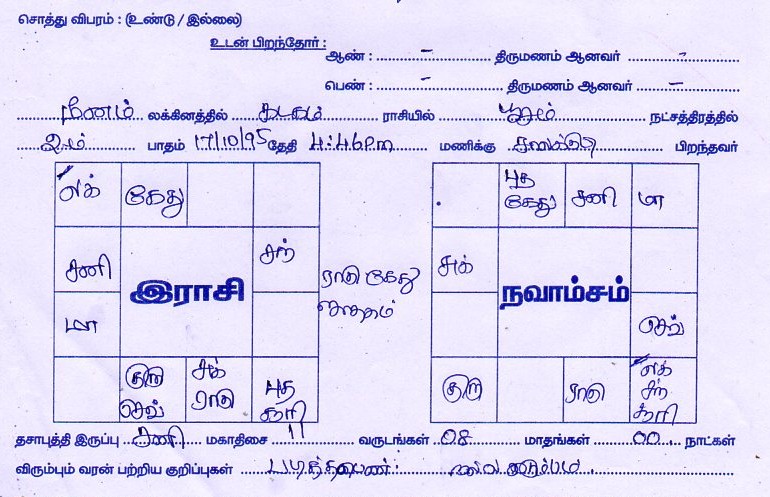 சொத்து விபரம் : (உண்டு / இல்லை)
உடன் பிறந்தோர் :
ஆண் : – திருமணம் ஆனவர் –
பெண் : – திருமணம் ஆனவர் –
மீனம் லக்கினத்தில் கடகம் ராசியில் பூசம் நட்சத்திரத்தில்
2ம் பாதம் 17/10/95 தேதி 4:46 P.m மணிக்கு பிறந்தவர்
லக் கேது
புத கேது சனி மா
சனி சந்
சுக்
இராசி
நவாம்சம்
ராகு கேது
ஜாதகம்
மா
செவ்
குரு செவ் சுக் ராகு புத சூரி
குரு ராகு லக் சந் சூரி
தசாபுத்தி இருப்பு சனி மகாதிசை 11 வருடங்கள் 08 மாதங்கள் 00 நாட்கள்
விரும்பும் வரன் பற்றிய குறிப்புகள் படித்தபெண். நல்ல குடும்பம்.